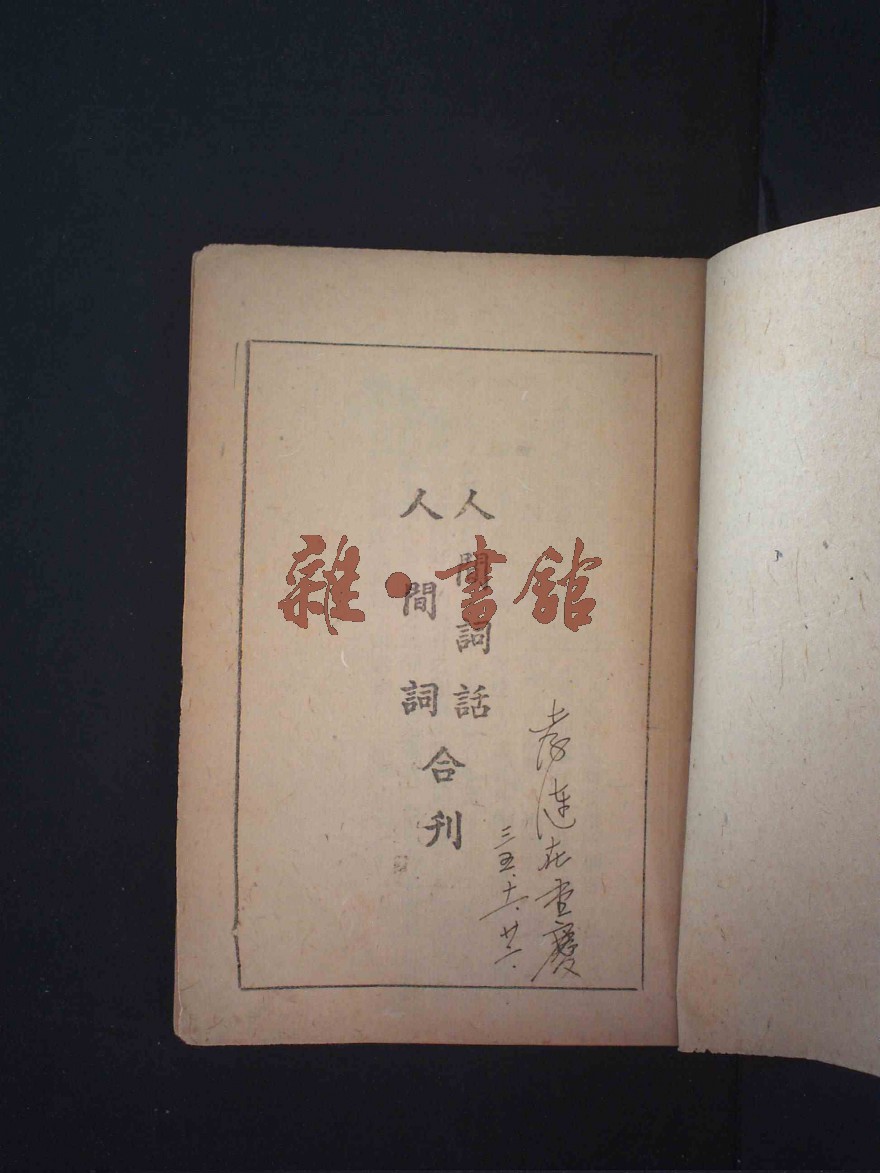 人間詞話
人間詞
合刊
孝漣在重慶
三五、十一、廿二、
雜·書館